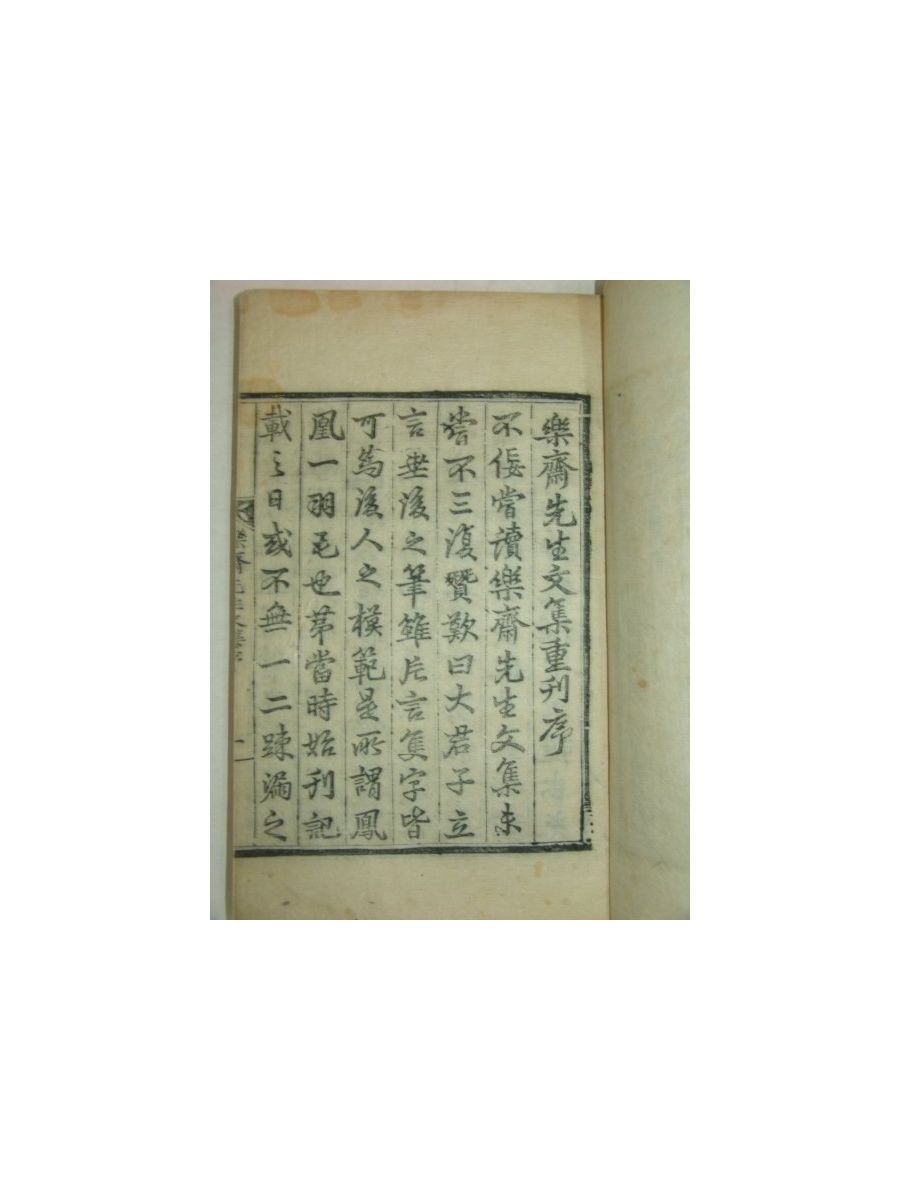 樂齋先生文集重刊序
不佞嘗讀樂齋先生文集未
嘗不三復贊歎曰大君子立
言垂後之筆雖片言隻字皆
可為後人之模範是所謂鳳
凰一羽毛也苐當時始刊記
載之日或不無一二踈漏之
樂齋先生文集序
一